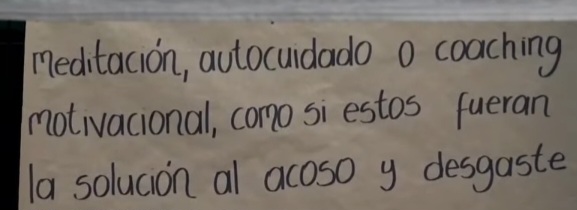 meditación, autocuidado o coaching
motivacional, como si estos fueran
la solución al acoso y desgaste